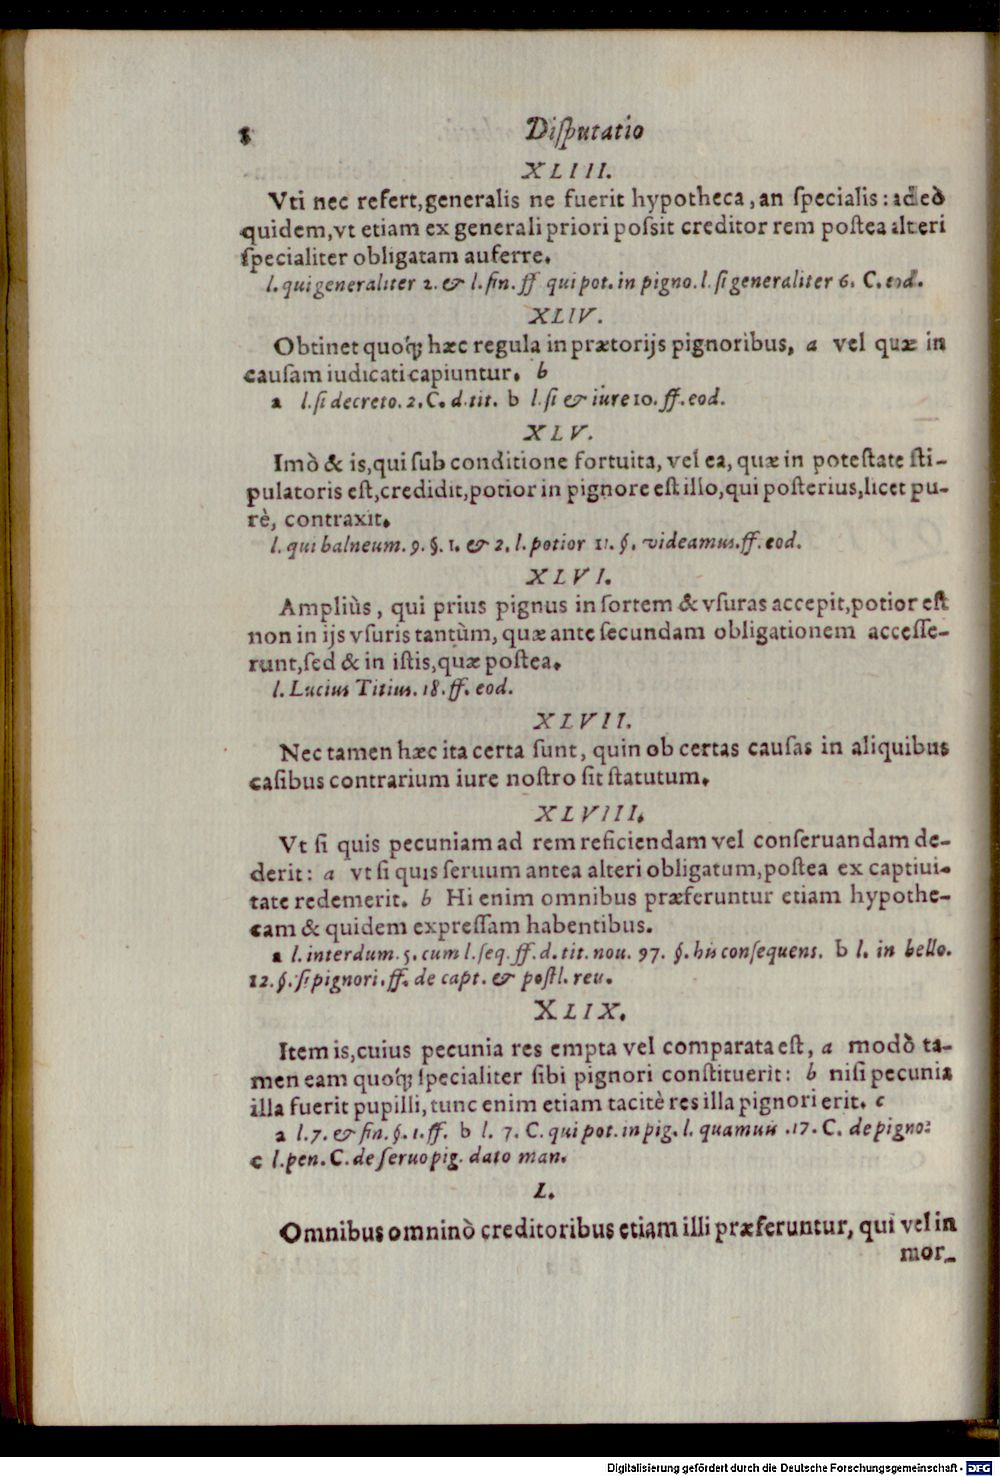 8 Disputatio
XLIII.
Vti nec refert, generalis ne fuerit hypotheca, an specialis: adeò
quidem, vt etiam ex generali priori possit creditor rem postea alteri
specialiter obligatam auferre.
l. qui generaliter 2. & l. fin. ff qui pot. in pigno. l. si generaliter 6. C. eod.
XLIV.
Obtinet quoq; hæc regula in prætorijs pignoribus, a vel quæ in
causam iudicati capiuntur. b
a l. si decreto. 2. C. d. tit. b l. si & iure 10. ff. eod.
XLV.
Imò & is, qui sub conditione fortuita, vel ea, quæ in potestate sti-
pulatoris est, credidit, potior in pignore est illo, qui posterius, licet pu-
rè, contraxit.
l. qui balneum. 9. §. 1. & 2. l. potior 11. §. videamus. ff. eod.
XLVI.
Ampliùs, qui prius pignus in sortem & vsuras accepit, potior est
non in ijs vsuris tantùm, quæ ante secundam obligationem accesse-
runt, sed & in istis, quæ postea.
l. Lucius Titius. 18. ff. eod.
XLVII.
Nec tamen hæc ita certa sunt, quin ob certas causas in aliquibus
casibus contrarium iure nostro sit statutum.
XLVIII.
Vt si quis pecuniam ad rem reficiendam vel conseruandam de-
derit: a vt si quis seruum antea alteri obligatum, postea ex captiui-
tate redemerit. b Hi enim omnibus præferuntur etiam hypothe-
cam & quidem expressam habentibus.
a l. interdum. 5. cum l. seq. ff. d. tit. nou. 97. §. his consequens. b l. in bello.
12. §. si pignori. ff. de capt. & postl. reu.
XLIX.
Item is, cuius pecunia res empta vel comparata est, a modò ta-
men eam quoq; specialiter sibi pignori constituerit: b nisi pecunia
illa fuerit pupilli, tunc enim etiam tacitè res illa pignori erit. c
a l. 7. & fin. §. 1. ff. b l. 7. C. qui pot. in pig. l. quamuis .17. C. de pigno:
c l. pen. C. de seruo pig. dato man.
L.
Omnibus omninò creditoribus etiam illi præferuntur, qui vel in
mor-
Digitalisierung gefördert durch die Deutsche Forschungsgemeinschaft - DFG